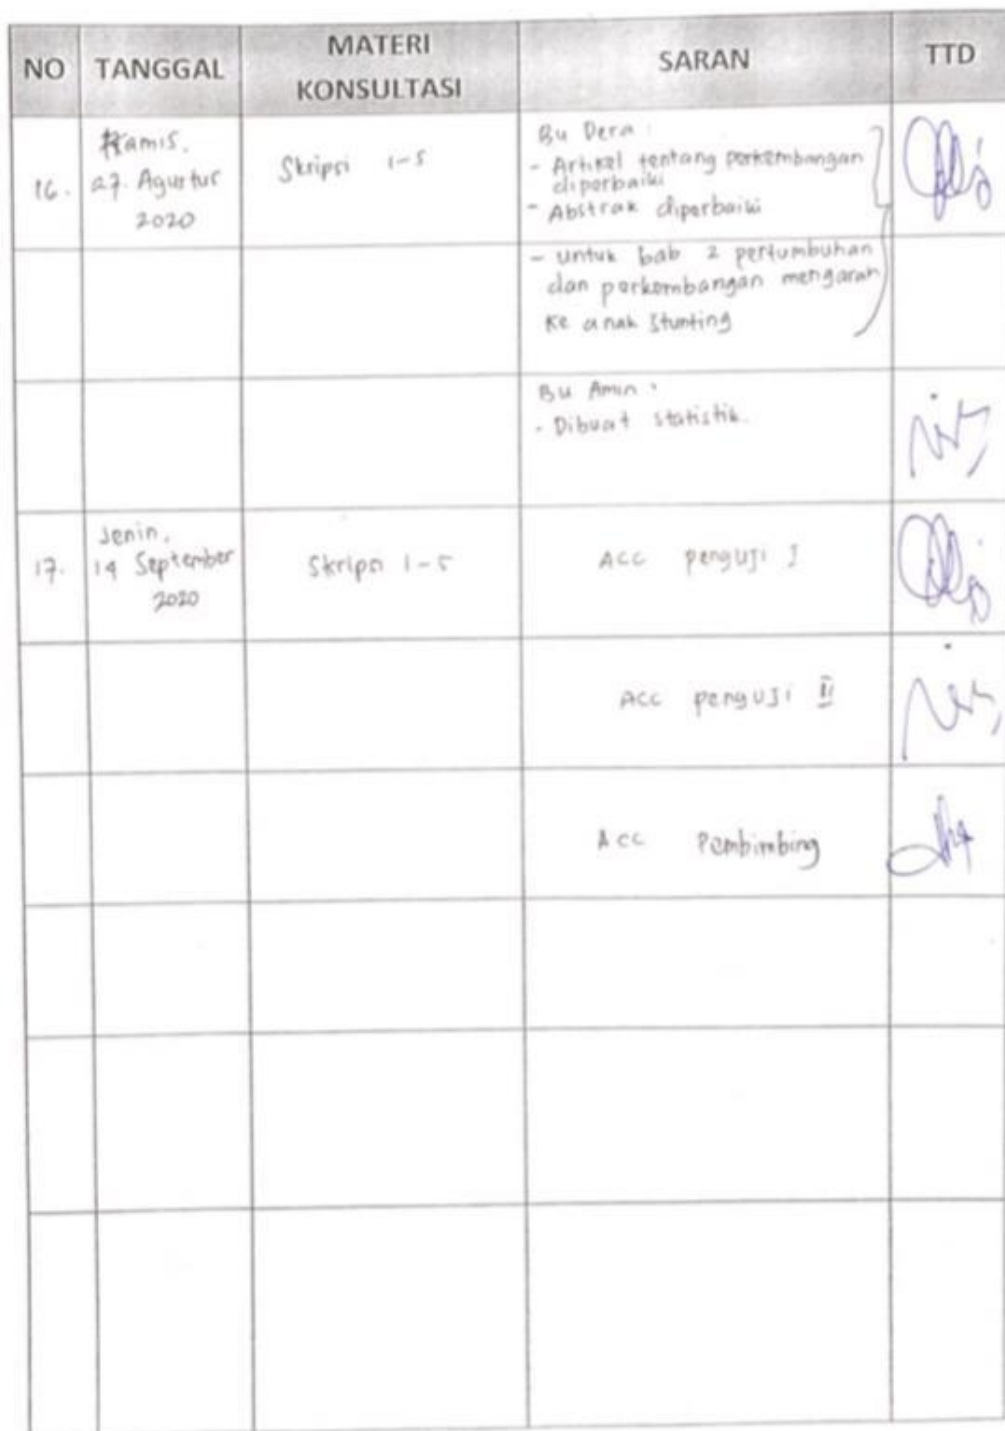 NO TANGGAL MATERI KONSULTASI SARAN TTD
16.
Kamis,
27. Agustus
2020
Skripsi 1-5
Bu Dera :
- Artikel tentang perkembangan
diperbaiki
- Abstrak diperbaiki
- untuk bab 2 pertumbuhan
dan perkembangan mengarah
ke anak stunting
Bu Amin :
- Dibuat statistik.
17.
Senin,
14 September
2020
Skripsi 1-5
ACC penguji I
ACC penguji II
ACC Pembimbing